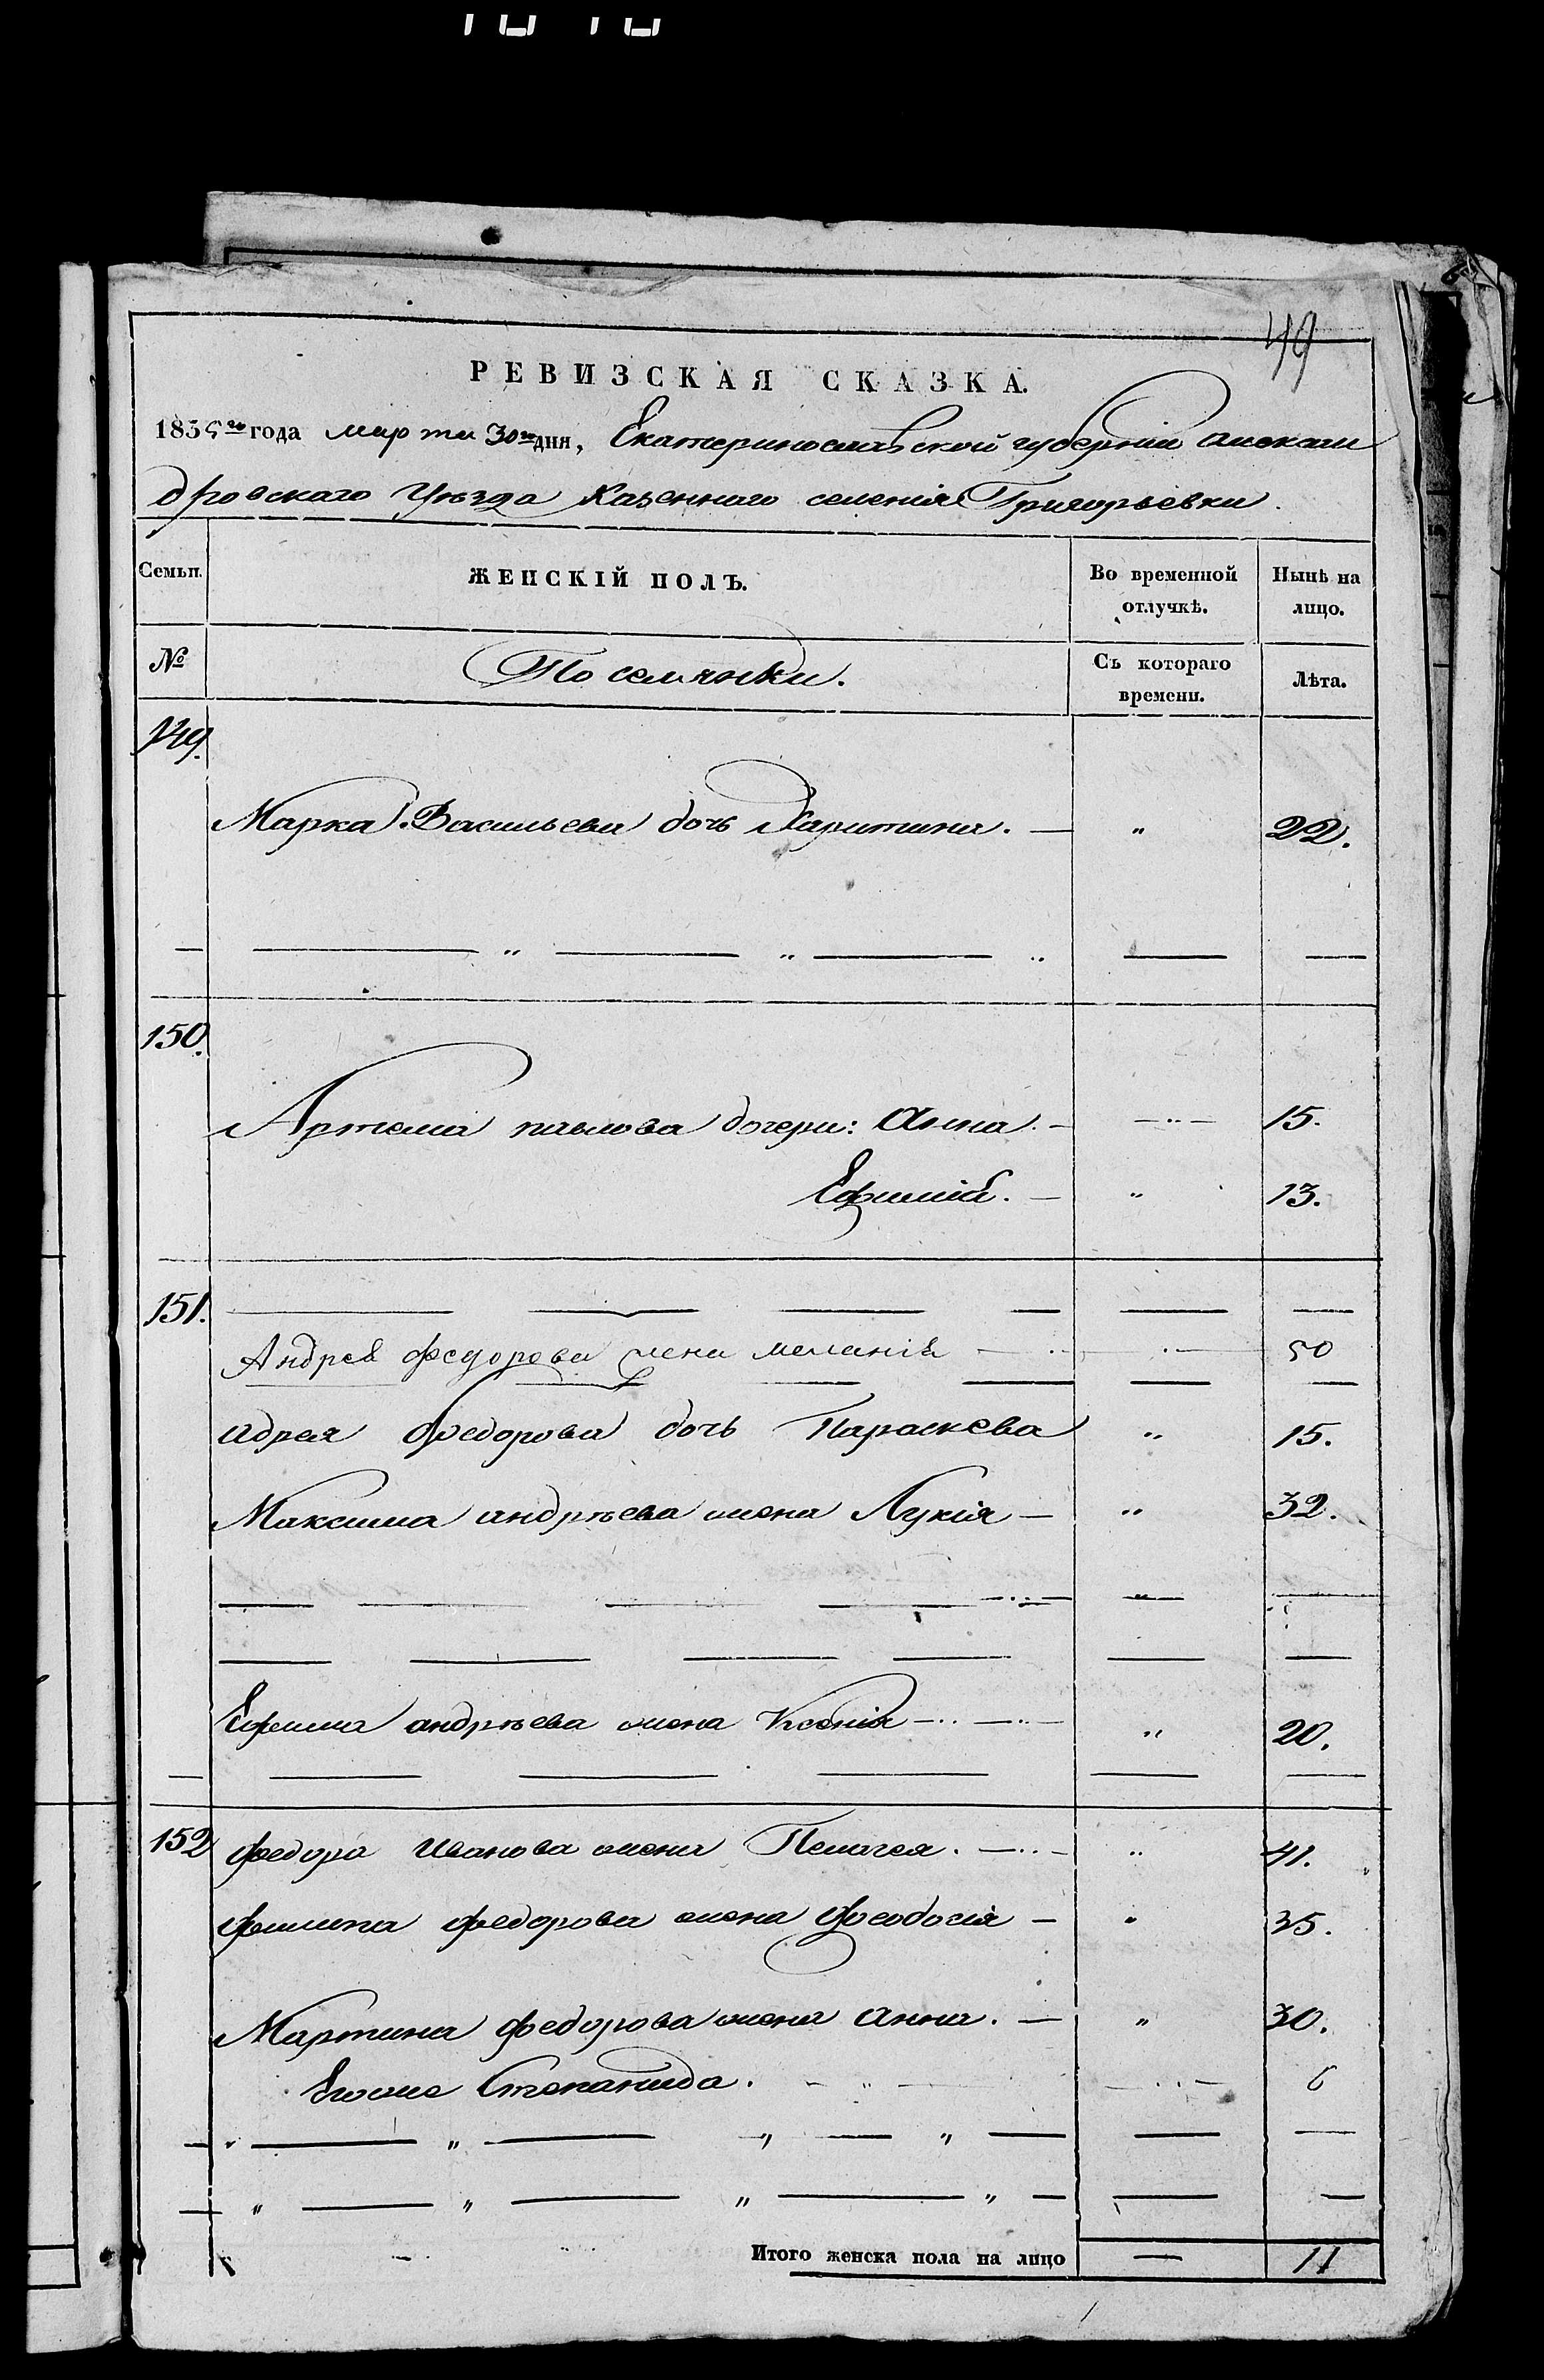 49
РЕВИЗСКАЯ СКАЗКА.
1835го года марта 30го дня, Екатеринославской губерніи алексан
дровскаго Уѣзда Казеннаго селенія Григорьевки.
Семьи. ЖЕНСКІЙ ПОЛЪ. Во временной отлучкѣ. Нынѣ на лицо.
№ Поселянки. Съ котораго времени. Лѣта.
149.
Марка Васильева дочь Харитина. — " 22.
— — " — " — " — —
150.
Артема павлова дочери: Анна. — — " — 15.
Ефимія. — " 13.
151. — — — — — —
Андрея федорова жена меланія — 50
— — — — — —
адрея Федорова дочь Параскева " 15.
Максима андрѣева жена Лукія — " 32.
— — — — — " — —
— — — — — —
Ефима андрѣева жена Ксенія — " — " 20.
— — — — — —
152 федора Иванова жена Пелагея. — " 41.
филипа федорова жена Феодосія — " 35.
Мартина федорова жена Анна. — " 30.
Егоже Степанида. — " — — " — 6
— " — " — " — " — — —
— " — " — " — " — — —
Итого женска пола на лицо — 11